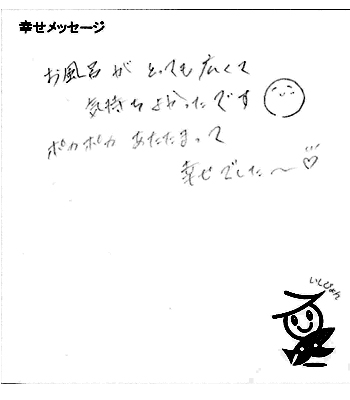 幸せメッセージ
お風呂が とっても広くて
気持ちよかったです
ポカポカ あたたまって
幸せでした〜♡
いしぴょん